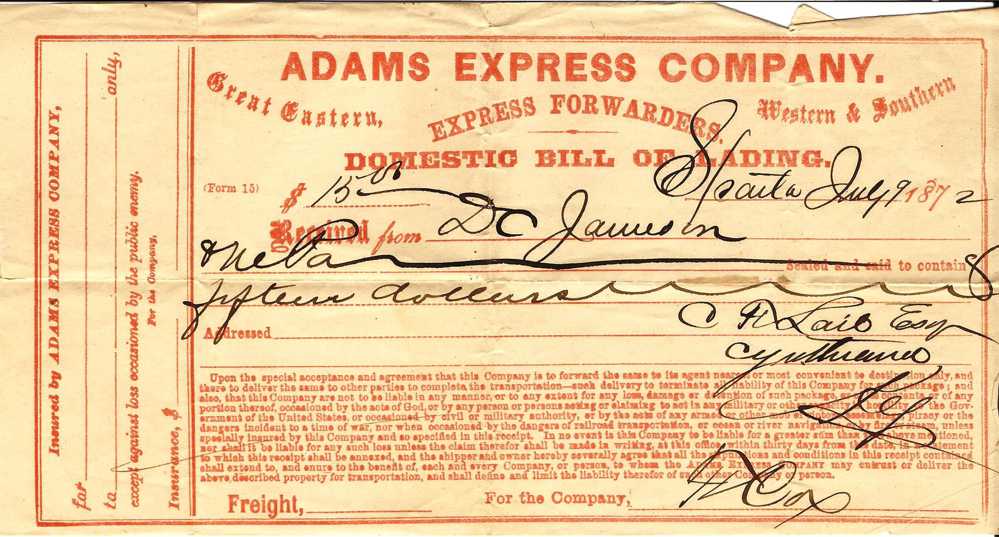 ADAMS EXPRESS COMPANY.
Great Eastern, EXPRESS FORWARDERS, Western & Southern
DOMESTIC BILL OF LADING.
(Form 15) $ 15 00 Sparta July 9 1872
Received from D C Jameson
One Pa Sealed and said to contain $
fifteen dollars
Addressed C H Lail Esq
Cynthiana
Ky
Upon the special acceptance and agreement that this Company is to forward the same to its agent nearest or most convenient to destination only, and
there to deliver the same to other parties to complete the transportation—such delivery to terminate all liability of this Company for such package; and
also, that this Company are not to be liable in any manner, or to any extent for any loss, damage or detention of such package, or its contents or of any
portion thereof, occasioned by the acts of God, or by any person or persons acting or claiming to act in any military or other capacity in hostility to the Gov-
ernment of the United States, or occasioned by civil or military authority, or by the acts of any armed or other mob, riotous assembly, piracy or the
dangers incident to a time of war, nor when occasioned by the dangers of railroad transportation, or ocean or river navigation, or by fire, unless
specially insured by this Company and so specified in this receipt. In no event is this Company to be liable for a greater sum than that above mentioned,
nor shall it be liable for any such loss unless the claim therefor shall be made in writing, at this office within thirty days from this date, in a statement
to which this receipt shall be annexed, and the shipper and owner hereby severally agree that all the stipulations and conditions in this receipt contained
shall extend to, and enure to the benefit of, each and every Company, or person, to whom the ADAMS EXPRESS COMPANY may entrust or deliver the
above described property for transportation, and shall define and limit the liability therefor of such other Company or person.
Freight, For the Company, Cox
Insured by ADAMS EXPRESS COMPANY,
for
to only,
except against loss occasioned by the public enemy.
For the Company,
Insurance, $